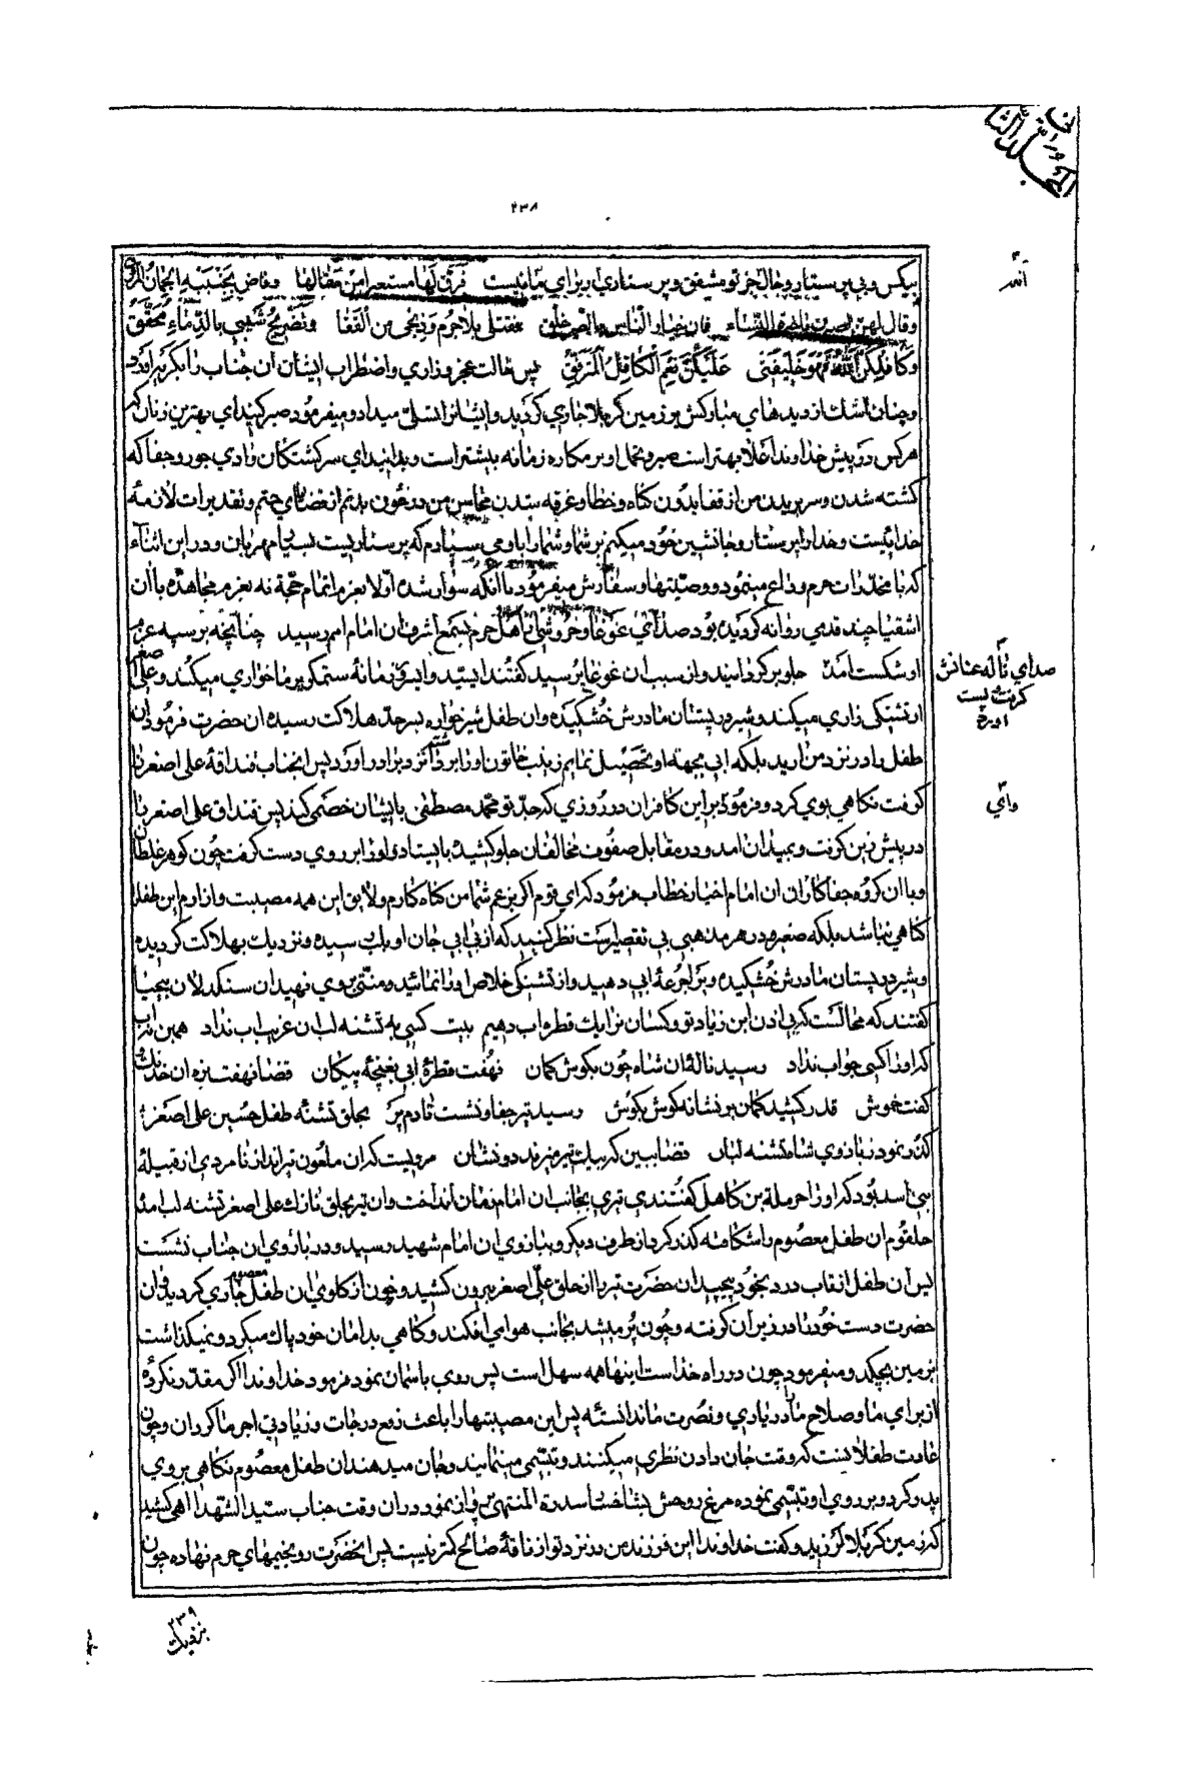 المجلد الثاني
۲۳۸
بیکس و بی پرستار و حال جز تو مشفق و پرستاری برای ما نیست فرق لها مستعبرا من مقالها وفاض بجنبیه الجمان
وقال لهن یا خیرة النساء فان خیار الناس بالصبر خلق مقتلی بلا جرم وذبحی من القفا وتضریج شیبی بالدماء محقق
وکافلکن الله وهو خلیفتی علیکن نعم الکافل المترفق پس حالت عجز و زاری و اضطراب ایشان ان جناب را بگریه اورد
و چنان اشک از دیدهای مبارکش بر زمین کربلا جاری گردید و ایشانرا تسلی میداد و میفرمود صبر کنید ای بهترین زنان که
هر کس در پیش خداوند اعلا بهتر است صبر و تحمل او بر مکاره زمانه بیشتر است و بدانید ای سرگشتگان وادی جور و جفا که
کشته شدن و سر بریدن من از قفا بدون گناه و خطا و غرقه شدن محاسن من در خون بدنم از قضای حتم و تقدیرات لازمهٔ
خدائیست و خدا را پرستار و جانشین خود میکنم بر شما و شما را باو می سپارم که پرستاریست بسیار مهربان و در این اثناء
که با مخدرات حرم وداع مینمود و وصیتها و سفارش میفرمود با انکه سوار شده اولا بعزم اتمام حجة نه بعزم مجاهده با ان
اشقیا چند قدمی روانه گردیده بود صدای غوغا و خروشی از اهل حرم بسمع اشرف ان امام امم رسید چنانچه بر سپه عزم
او شکست امد جلو برگردانید و از سبب ان غوغا پرسید گفتند ایسید و ایسرور زمانهٔ ستمگر بر ما خواری میکند و علی اصغر
از تشنگی زاری میکند و شیر در پستان مادرش خشکیده و ان طفل شیرخواره بسرحد هلاکت رسیده ان حضرت فرمود ان
طفل را در نزد من ارید بلکه ابی بجهة او تحصیل نمایم زینب خاتون او را برداشته نزد برادر اورد پس انجناب قنداقهٔ علی اصغر را
گرفت نگاهی بوی کرد و فرمود بر این کافران در روزی که جد تو محمد مصطفی با ایشان خصمی کند پس قنداق علی اصغر را
در پیش زین گرفت و بمیدان امد و در مقابل صفوف مخالفان جلو کشید بایستاد و او را بر روی دست گرفت چون گوهر غلطان
و با ان گروه جفاکاران ان امام اخیار خطاب فرمود که ای قوم اگر بزعم شما من گناه کارم و لایق این همه مصیبت و ازارم این طفل
گناهی نباشد بلکه صغیر در هر مذهبی بی تقصیر است نظر کنید که از بی ابی جان او بلب رسیده و نزدیک بهلاکت گردیده
و شیر در پستان مادرش خشکیده ویرا جرعهٔ ابی دهید و از تشنگی خلاص او را نمائید و منتی بر وی نهید ان سنگدلان بیحیا
گفتند که محالست که بی اذن ابن زیاد تو و کسان ترا یک قطره اب دهیم بیت کسی به تشنه لبان عزیب اب نداد همین نه اب
که او را کسی جواب نداد رسید نالهٔ ان شاه چون بگوش کمان نهفت قطرهٔ ابی بغنچهٔ پیکان قضا نهفته زه ان خدنگ و
گفت خموش قدر کشید کمان بر نشانه گوش بگوش رسید تیر جفا و نشست تا دم پر بحلق تشنهٔ طفل حسین علی اصغر
گذر نمود ز بازوی شاه تشنه لبان قضا ببین که بیک تیر میزند دو نشان مرویست که ان ملعون تیرانداز نامردی از قبیلهٔ
بنی اسد بود که او را حرملة بن کاهل گفتندی تیری بجانب ان امام زمان انداخت و ان تیر بحلق نازک علی اصغر تشنه لب امد
حلقوم ان طفل معصوم را شکافته گذر کرد از طرف دیگر و ببازوی ان امام شهید رسید و در بازوی ان جناب نشست
پس ان طفل از تاب درد بخود پیچید ان حضرت تیر را از حلق علی اصغر بیرون کشید و خون از گلوی ان طفل معصوم جاری گردید ان
حضرت دست خود را در زیر ان گرفته و چون پر میشد بجانب هوا می افکند و گاهی بدامان خود پاک میکرد و نمیگذاشت
بزمین بچکد و میفرمود چون در راه خداست اینها همه سهل است پس روی باسمان نمود فرمود خداوندا اگر مقدر نکردهٔ
از برای ما و صلاح ما را در یاری و نصرت ما ندانستهٔ پس این مصیبتها را باعث رفع درجات و زیادتی اجر ما گردان و چون
عادت طفلانیست که وقت جان دادن نظری میکنند و تبسمی مینمایند و جان میدهند ان طفل معصوم نگاهی بروی
پدر کرد و بر روی او تبسمی نموده مرغ روحش بشاخسار سدرة المنتهی پرواز نمود در ان وقت جناب سید الشهدا اهی کشید
که زمین کربلا لرزید و گفت خداوندا این فرزند من در نزد تو از ناقهٔ صالح کمتر نیست پس انحضرت رو بخیمهای حرم نهاده چون
الله
صدای ناله عنانش
گرفت
وای
۲۳۹